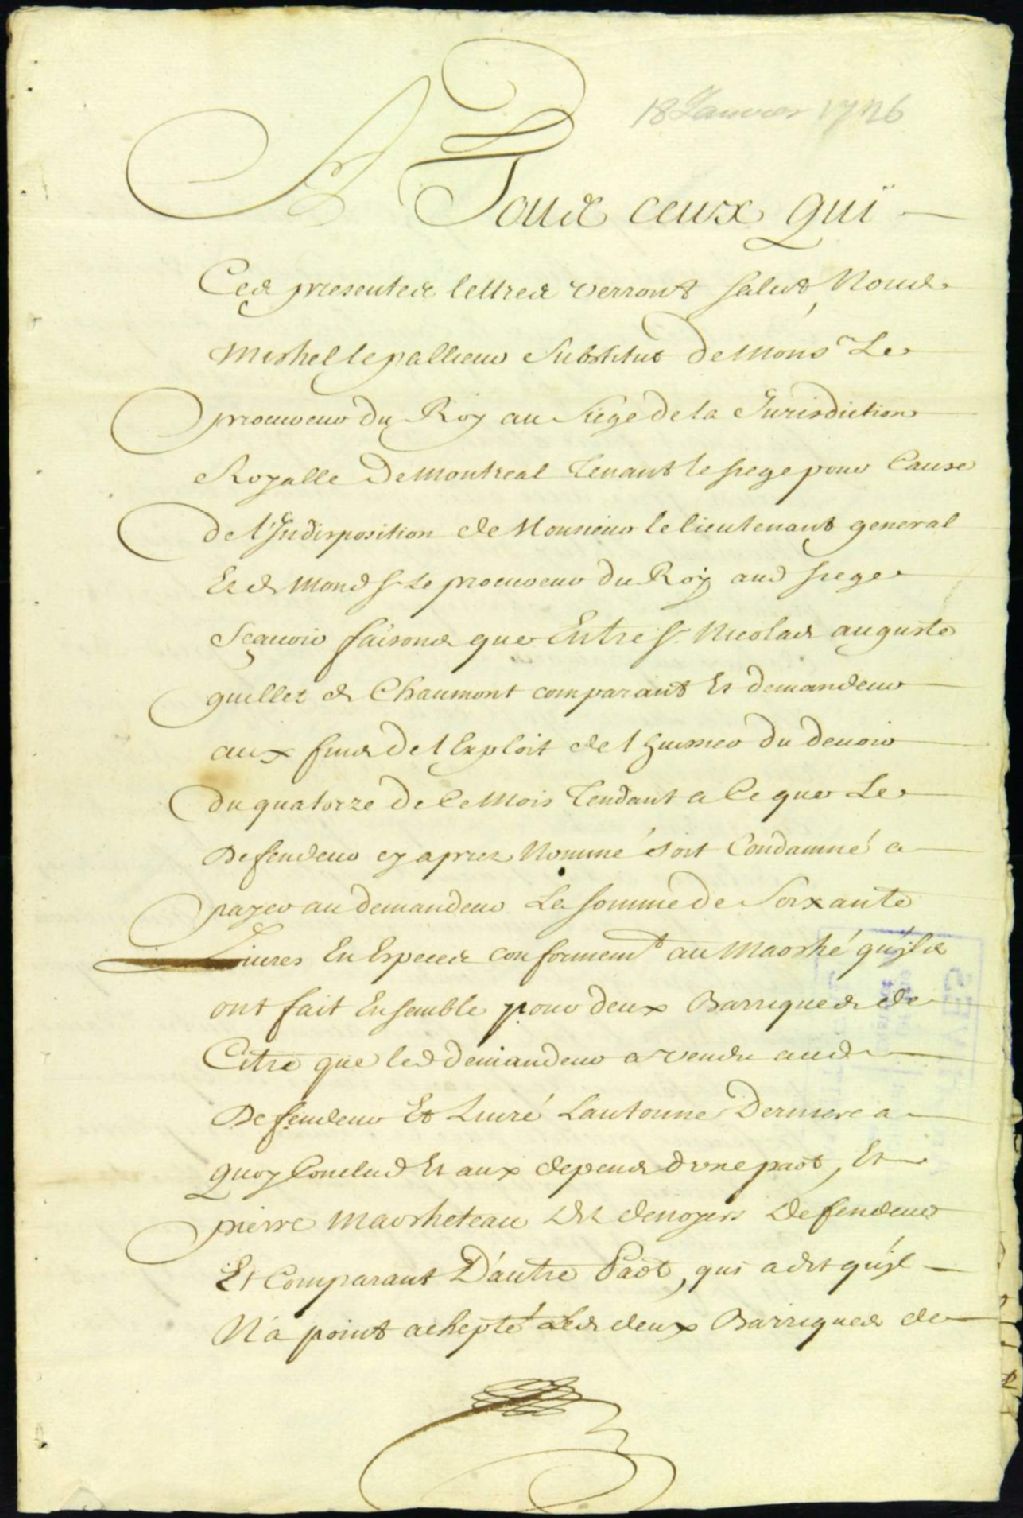 18 Janvier 1726
A Tous ceux qui
Ces presentes lettres verront salut, Nous
Michel lepallieur Substitut de Mons.r Le
procureur du Roy au siege de la Jurisdiction
Royalle de Montreal tenant le siege pour Cause
de l'Indisposition de Monsieur le lieutenant general
Et de Mond. Sr. Le procureur du Roy aud siege
Sçavoir faisons que Entre Sr. Nicolas auguste
guillet de Chaumont comparant Et demandeur
aux fins de l Exploit de l huissier du
du quatorze de Ce Mois tendant a Ce que Le
Defendeur cy apres Nommé soit Condamné a
payer au demandeur La somme de Soixante
Livres En Especes conformem.t au Marché quyls
ont fait Ensemble pour deux Barriques de
Citre que led demandeur a vendu aud
Defendeur Et Livré Lautonne Derniere a
quoy Conclud Et aux depens d'une part, Et
pierre Marcheteau dit denoyers Defendeur
Et Comparant D'autre Part, qui a dit quyl
N'a point achepté les deux Barriques de